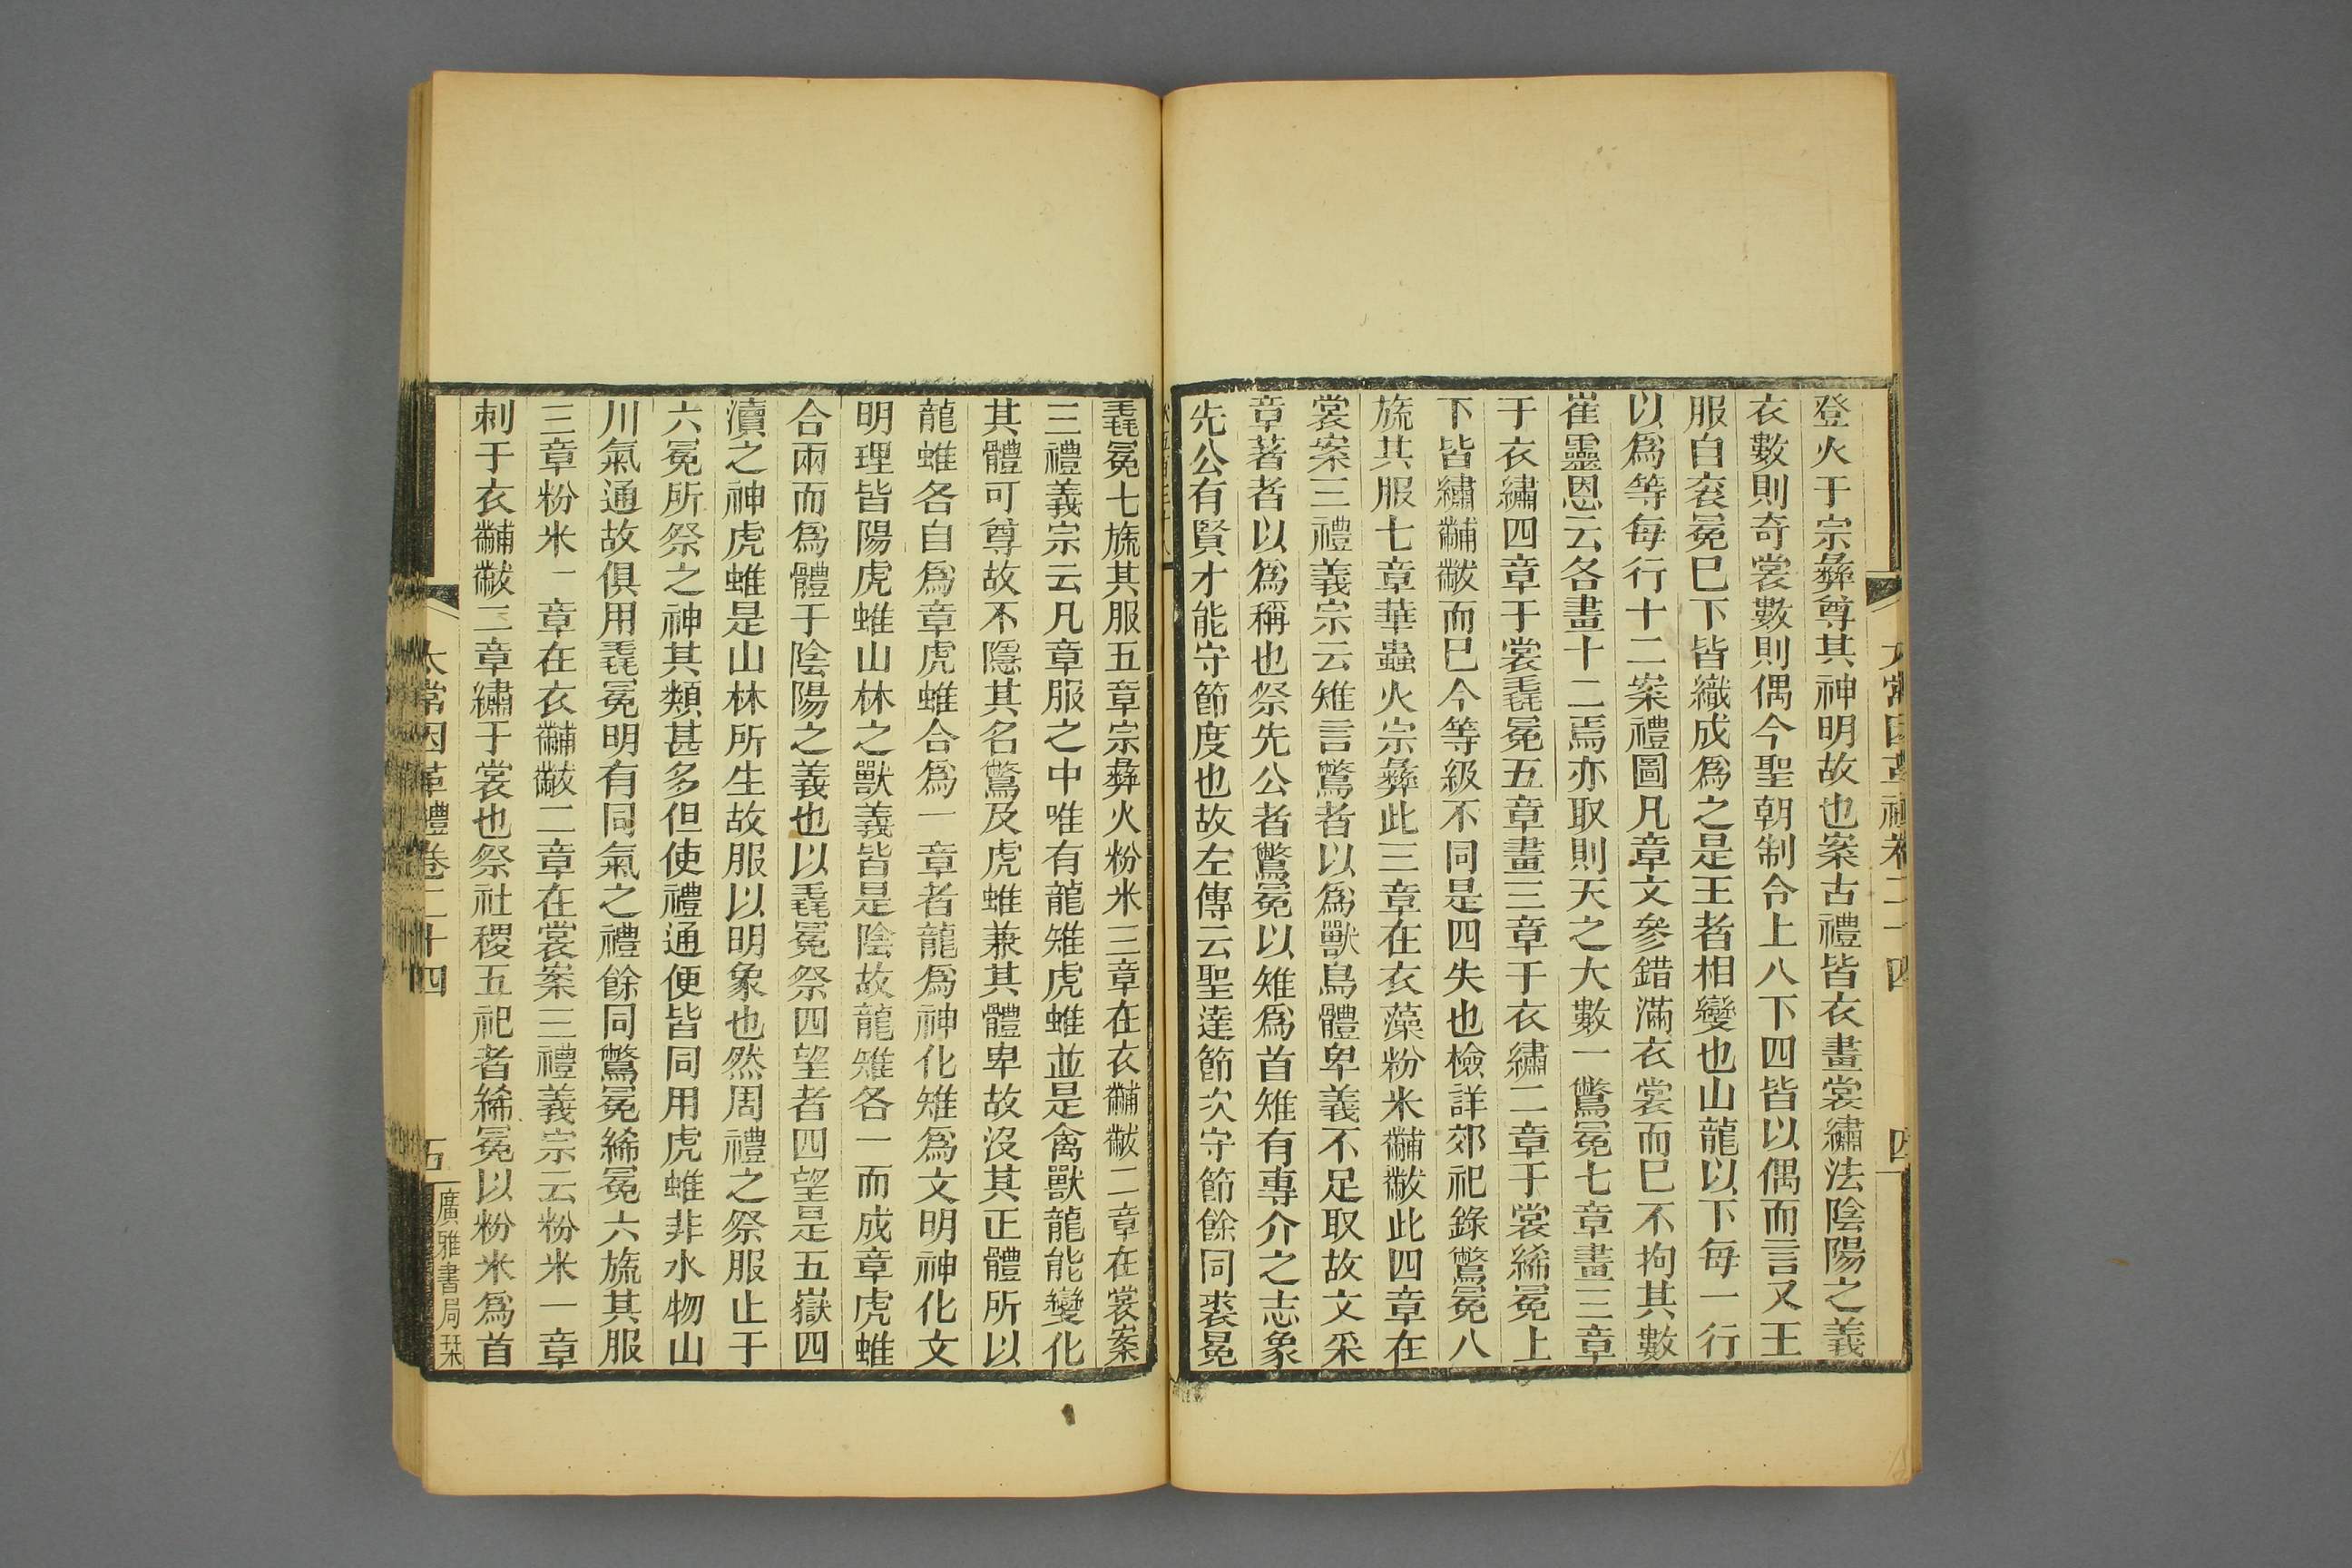 登火于宗彝尊其神明故也案古禮皆衣畫裳繡法陰陽之義
衣數則奇裳數則偶今聖朝制令上八下四皆以偶而言又王
服自袞冕巳下皆織成爲之是王者相變也山龍以下每一行
以爲等每行十二案禮圖凡章文參錯滿衣裳而巳不拘其數
崔靈恩云各畫十二焉亦取則天之大數一鷩冕七章畫三章
于衣繡四章于裳毳冕五章畫三章于衣繡二章于裳絺冕上
下皆繡黼黻而巳今等級不同是四失也檢詳郊祀錄鷩冕八
旒其服七章華蟲火宗彝此三章在衣藻粉米黼黻此四章在
裳案三禮義宗云雉言鷩者以爲獸鳥體卑義不足取故文采
章著者以爲稱也祭先公者鷩冕以雉爲首雉有專介之志象
先公有賢才能守節度也故左傳云聖達節次守節餘同裘冕
毳冕七旒其服五章宗彝火粉米三章在衣黼黻二章在裳案
三禮義宗云凡章服之中唯有龍雉虎蜼並是禽獸龍能變化
其體可尊故不隱其名鷩及虎蜼兼其體卑故沒其正體所以
龍蜼各自爲章虎蜼合爲一章者龍爲神化雉爲文明神化文
明理皆陽虎蜼山林之獸義皆是陰故龍雉各一而成章虎蜼
合兩而爲體于陰陽之義也以毳冕祭四望者四望是五嶽四
瀆之神虎蜼是山林所生故服以明象也然周禮之祭服止于
六冕所祭之神其類甚多但使禮通便皆同用虎蜼非水物山
川氣通故俱用毳冕明有同氣之禮餘同鷩冕絺冕六旒其服
三章粉米一章在衣黼黻二章在裳案三禮義宗云粉米一章
刺于衣黼黻二章繡于裳也祭社稷五祀者絺冕以粉米爲首
太常因革禮卷二十四
五
廣雅書局栞